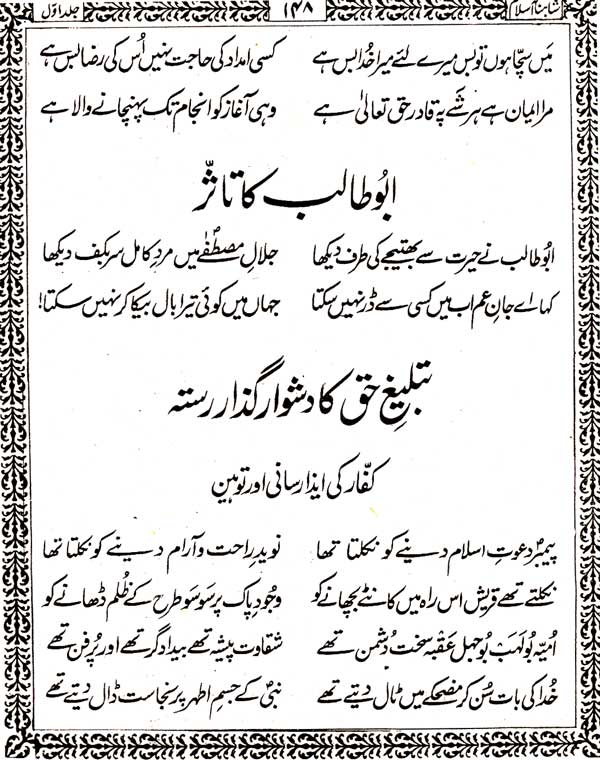 شاہنامۂ اسلام ۱۴۸ جلد اوّل
میں سچا ہوں تو بس میرے لئے میرا خُدا بس ہے کسی امداد کی حاجت نہیں اُس کی رضا بس ہے
مرا ایمان ہے ہر شے پہ قادر حق تعالیٰ ہے وہی آغاز کو انجام تک پہنچانے والا ہے
ابُوطالب کا تاثّر
ابُوطالب نے حیرت سے بھتیجے کی طرف دیکھا جلالِ مصطفٰےؐ میں مردِ کامل سر بکف دیکھا
کہا اے جانِ عم اب میں کسی سے ڈر نہیں سکتا جہاں میں کوئی تیرا بال بیکا کر نہیں سکتا!
تبلیغِ حق کا دشوار گذار رستہ
کفّار کی ایذا رسانی اور توہین
پیمبرؐ دعوتِ اسلام دینے کو نکلتا تھا نویدِ راحت و آرام دینے کو نکلتا تھا
نکلتے تھے قریش اس راہ میں کانٹے بچھانے کو وجُودِ پاک پر سَو سَو طرح کے ظُلم ڈھانے کو
اُمیّہ بُولہَب بُوجہل عقبہ سخت دُشمن تھے شقاوت پیشہ تھے بیداد گر تھے اور پُر فن تھے
خُدا کی بات سُن کر مضحکے میں ٹال دیتے تھے نبیؐ کے جسمِ اطہر پر نجاست ڈال دیتے تھے